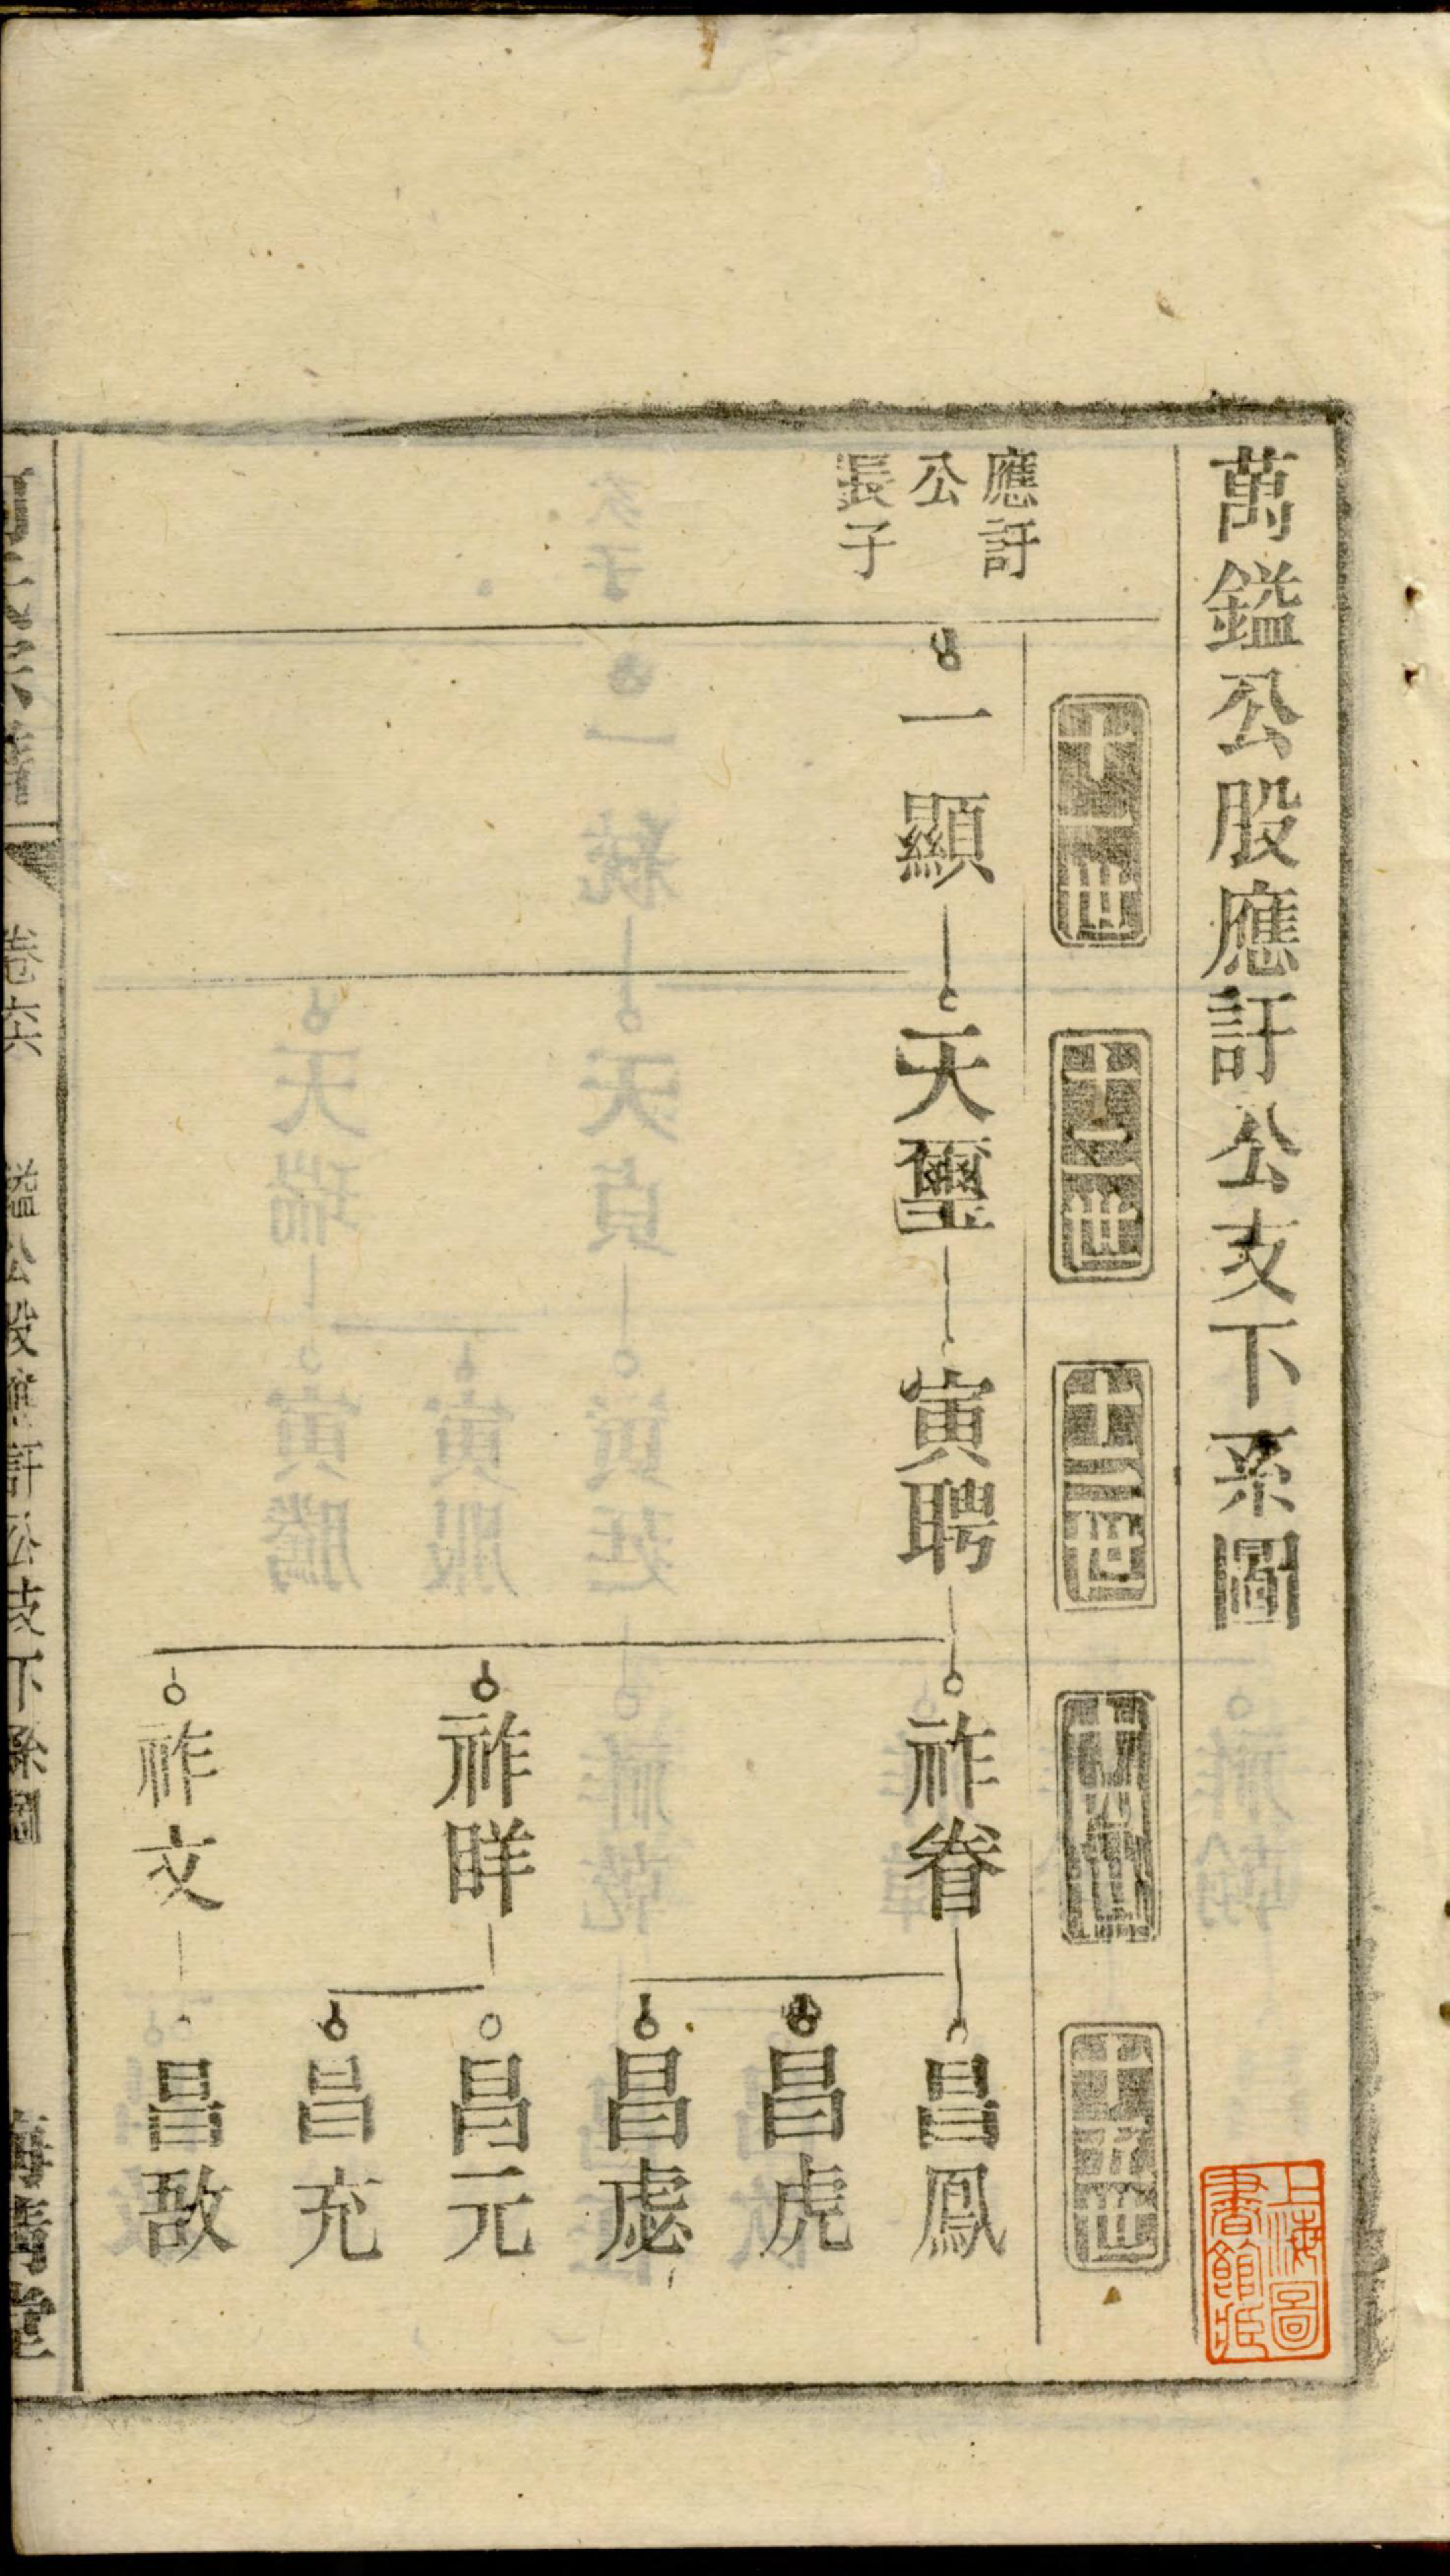 萬鎰公股應訐公支下系圖
十一世
十二世
十三世
十四世
十五世
應訐
公
長子
一顯
天璽
寅聘
祚眷
昌鳳
昌虎
昌虙
祚眻
昌元
昌充
祚文
昌敔
卷六
鎰公股應訐公支下系圖
上海圖
書館藏